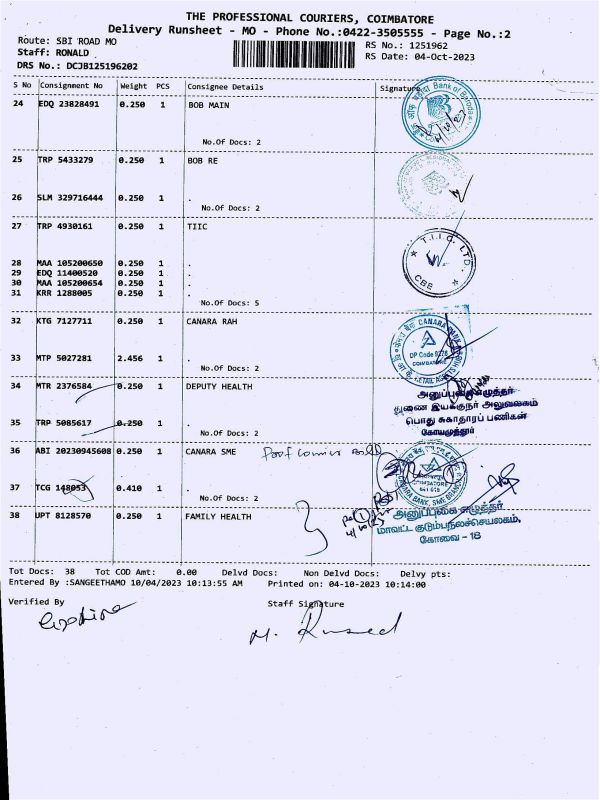 THE PROFESSIONAL COURIERS, COIMBATORE
Delivery Runsheet - MO - Phone No.:0422-3505555 - Page No.:2
Route: SBI ROAD MO
RS No.: 1251962
Staff: RONALD
RS Date: 04-Oct-2023
DRS No.: DCJB125196202
S No Consignment No Weight PCS Consignee Details Signature
24 EDQ 23828491 0.250 1 BOB MAIN
Bank of Baroda
No.Of Docs: 2
25 TRP 5433279 0.250 1 BOB RE
26 SLM 329716444 0.250 1 .
No.Of Docs: 2
27 TRP 4930161 0.250 1 TIIC
T.I.I.C. LTD.
CBE
28 MAA 105200650 0.250 1 .
29 EDQ 11400520 0.250 1 .
30 MAA 105200654 0.250 1 .
31 KRR 1288005 0.250 1 .
No.Of Docs: 5
32 KTG 7127711 0.250 1 CANARA RAH
CANARA BANK
DP Code
COIMBATORE
33 MTP 5027281 2.456 1 .
No.Of Docs: 2
34 MTR 2376584 0.250 1 DEPUTY HEALTH
அனுப்புகை எழுத்தர்
துணை இயக்குநர் அலுவலகம்
பொது சுகாதாரப் பணிகள்
கோயமுத்தூர்
35 TRP 5085617 0.250 1 .
No.Of Docs: 2
36 ABI 20230945608 0.250 1 CANARA SME
COIMBATORE
CANARA BANK, SME BRANCH
37 TCG 148053 0.410 1 .
No.Of Docs: 2
38 UPT 8128570 0.250 1 FAMILY HEALTH
அனுப்புகை எழுத்தர்
மாவட்ட குடும்பநலச்செயலகம்,
கோவை - 18
Tot Docs: 38 Tot COD Amt: 0.00 Delvd Docs: Non Delvd Docs: Delvy pts:
Entered By :SANGEETHAMO 10/04/2023 10:13:55 AM Printed on: 04-10-2023 10:14:00
Verified By
Staff Signature